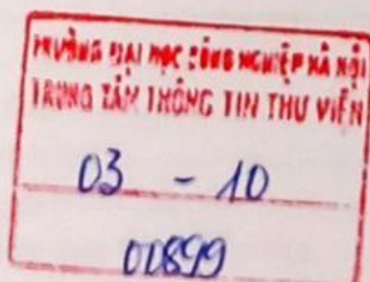 TRƯỜNG ĐẠI HỌC CÔNG NGHIỆP HÀ NỘI
TRUNG TÂM THÔNG TIN THƯ VIỆN
03 - 10
00899